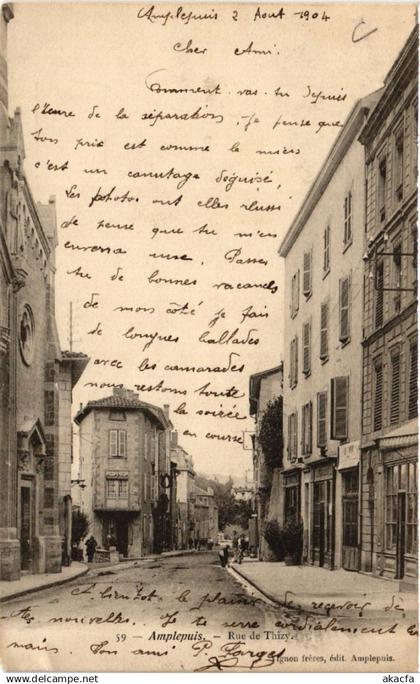 Amplepuis 2 Aout 1904
Cher Ami.
Comment vas-tu depuis
l'heure de la séparation, je pense que
ton prix est comme le miens
c'est un canutage déguisé,
Les photos ont elles réussi
je pense que tu m'en
enverra une. Passes
tu de bonnes vacances
de mon côté je fais
de longues ballades
avec les camarades
nous restons toute
la soirée
en course
A bientot le plaisir de recevoir de
tes nouvelles. Je te serre cordialement la
main. Ton ami P. Farges
59 Amplepuis. - Rue de Thizy.
Vignon frères, édit. Amplepuis.
www.delcampe.net
akacfa
akacfa